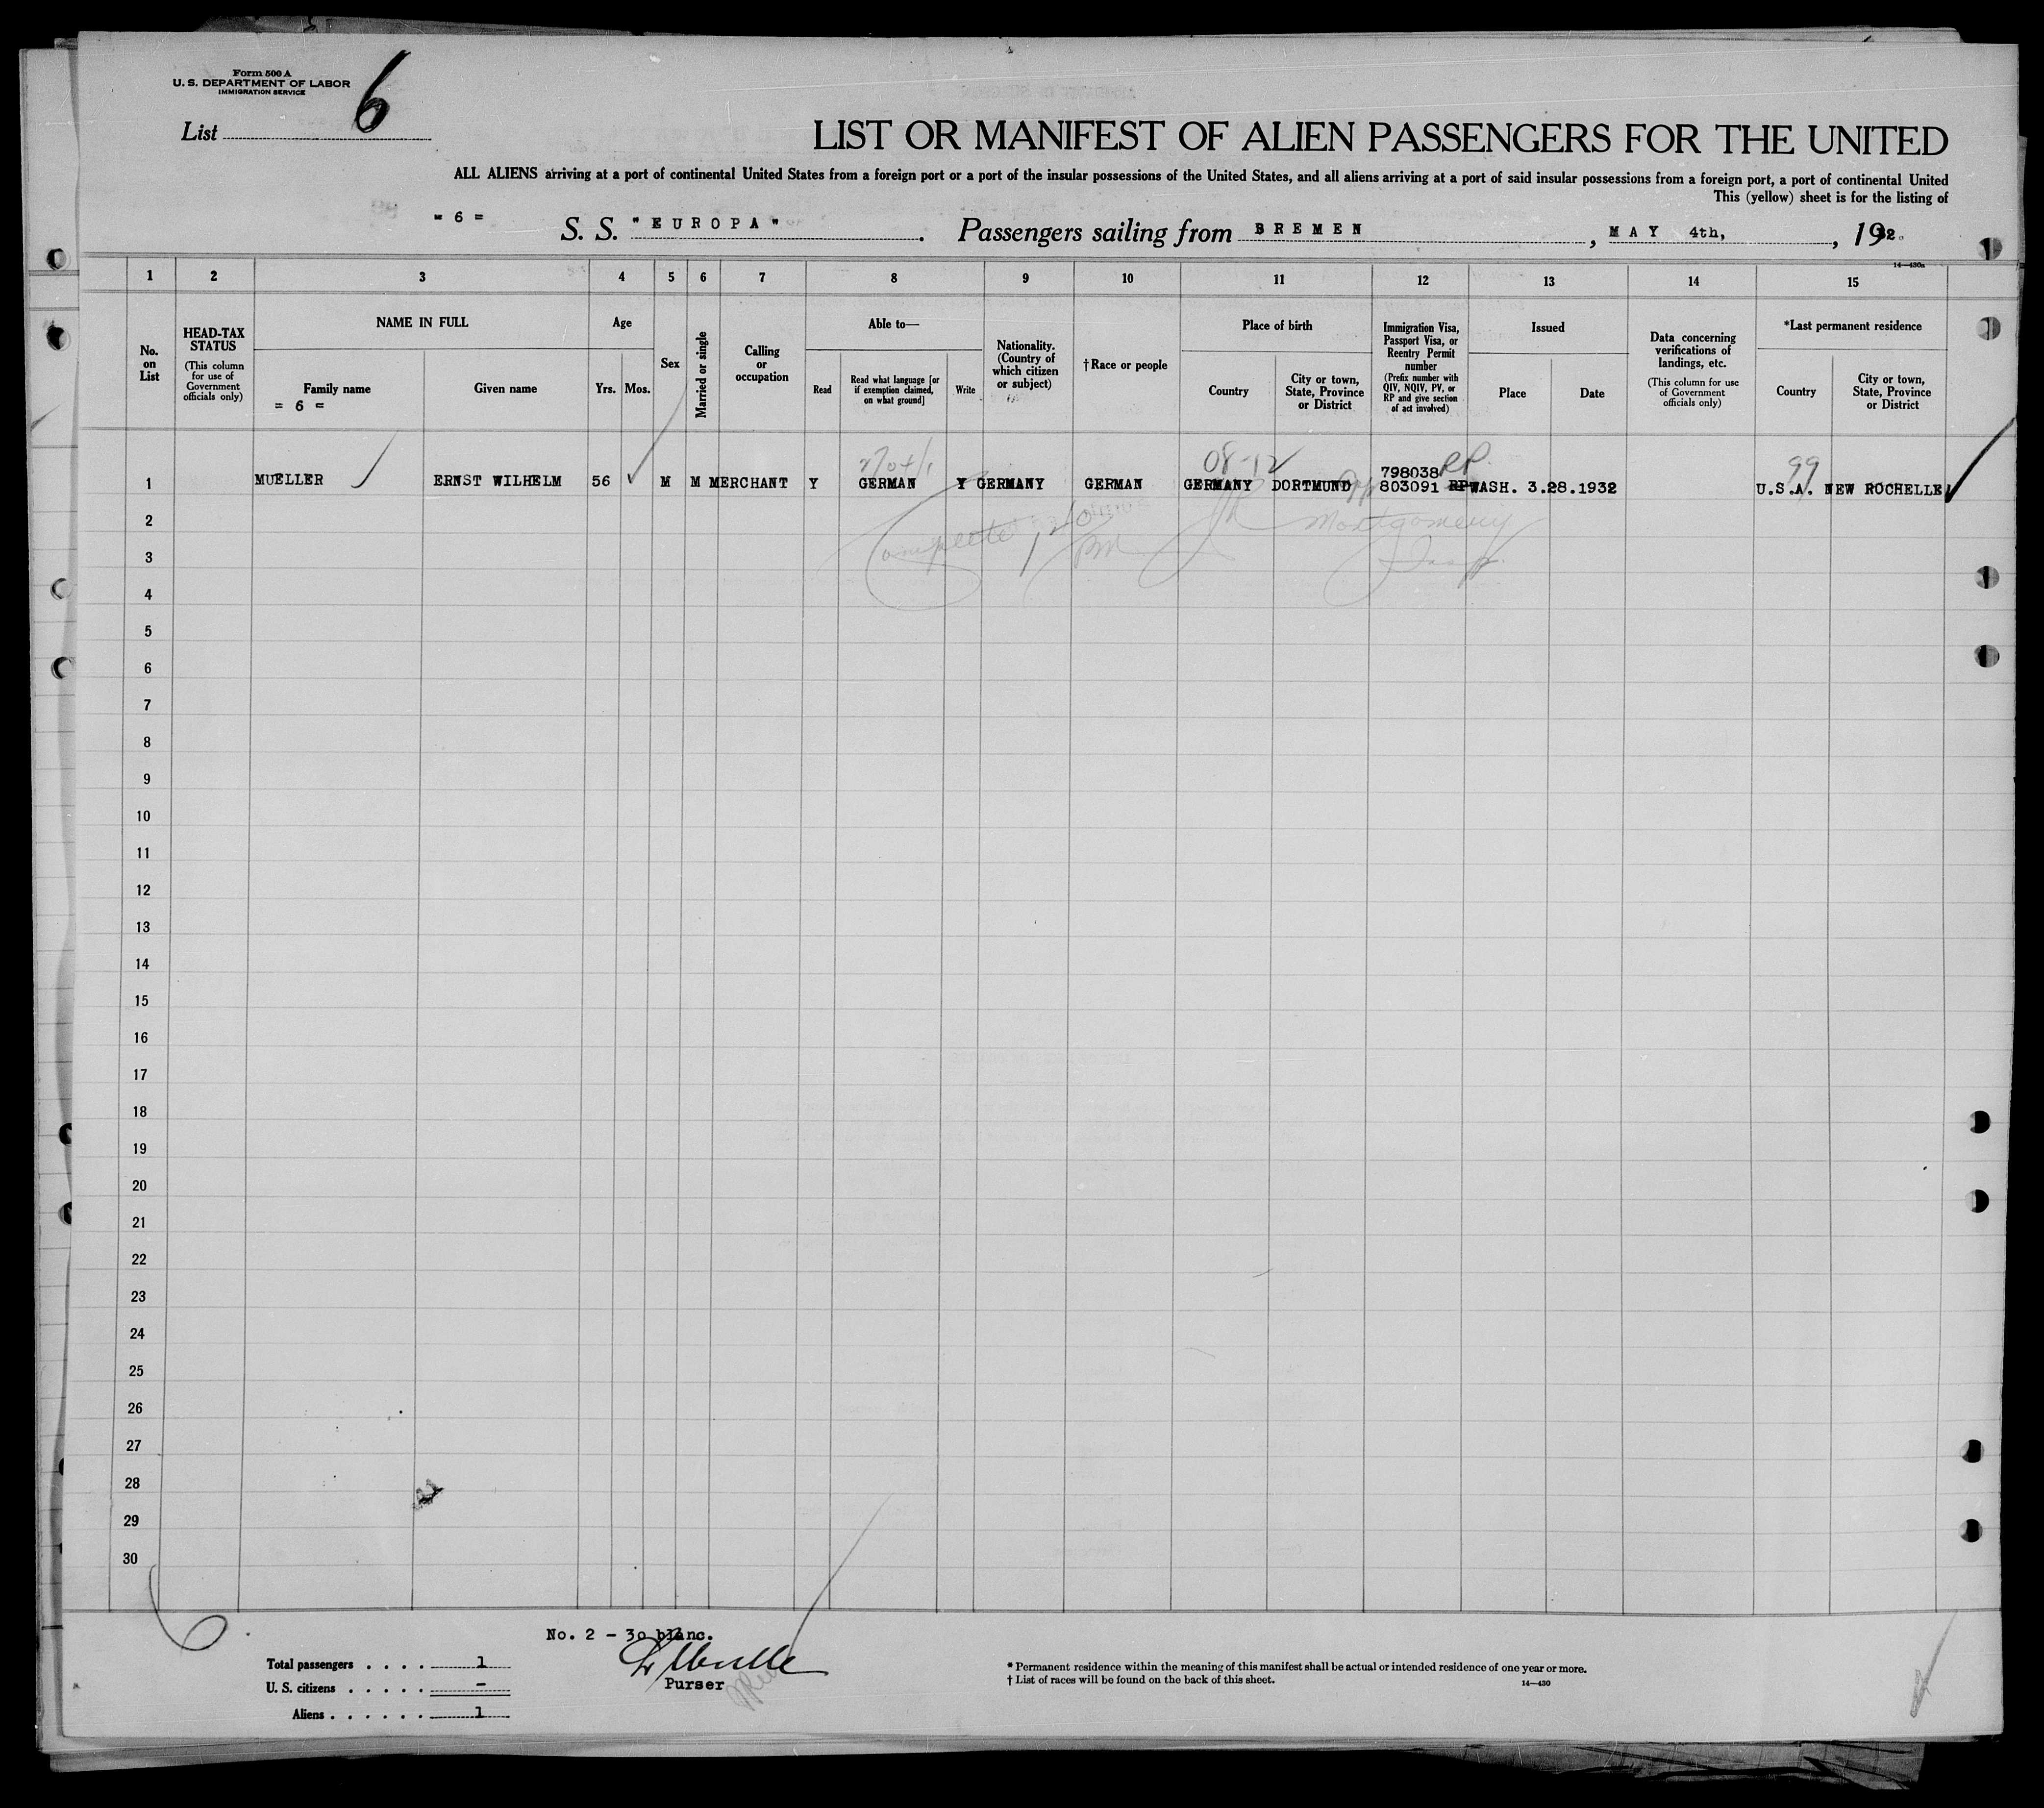 Form 500 A
U. S. DEPARTMENT OF LABOR
IMMIGRATION SERVICE
List 6
LIST OR MANIFEST OF ALIEN PASSENGERS FOR THE UNITED
ALL ALIENS arriving at a port of continental United States from a foreign port or a port of the insular possessions of the United States, and all aliens arriving at a port of said insular possessions from a foreign port, a port of continental United
This (yellow) sheet is for the listing of
= 6 = S. S. "EUROPA". Passengers sailing from BREMEN, MAY 4th, , 1932.
14—430a
1 2 3 4 5 6 7 8 9 10 11 12 13 14 15
No. on List
HEAD-TAX STATUS
(This column for use of Government officials only)
NAME IN FULL
Family name
= 6 =
Given name
Age
Yrs. Mos.
Sex
Married or single
Calling or occupation
Able to—
Read
Read what language [or if exemption claimed, on what ground]
Write
Nationality. (Country of which citizen or subject)
†Race or people
Place of birth
Country
City or town, State, Province or District
Immigration Visa, Passport Visa, or Reentry Permit number
(Prefix number with QIV, NQIV, PV, or RP and give section of act involved)
Issued
Place
Date
Data concerning verifications of landings, etc.
(This column for use of Government officials only)
*Last permanent residence
Country
City or town, State, Province or District
08-12
99
798038 RP.
1 MUELLER ERNST WILHELM 56 M M MERCHANT Y GERMAN Y GERMANY GERMAN GERMANY DORTMUND 803091 RP WASH. 3.28.1932 U.S.A. NEW ROCHELLE
Complete Montgomery
2
3
Insp.
4
5
6
7
8
9
10
11
12
13
14
15
16
17
18
19
20
21
22
23
24
25
26
27
28
29
30
No. 2 - 3o blanc.
Total passengers . . . . 1
U. S. citizens . . . . . -
Aliens . . . . . . 1
Purser
* Permanent residence within the meaning of this manifest shall be actual or intended residence of one year or more.
† List of races will be found on the back of this sheet.
14—430